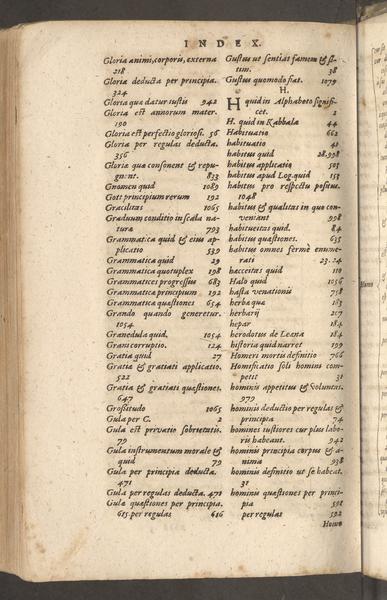 INDEX.
Gloria animi, corporis, externa
218
Gloria deducta per principia.
324
Gloria qua datur iustis 942
Gloria est annorum mater.
190
Gloria est perfectio gloriosi. 56
Gloria per regulas deducta.
356
Gloriæ quæ consonent & repu-
gnent. 833
Gnomen quid 1089
Gott principium rerum 192
Gracilitas 1065
Graduum conditio in scala na-
turæ 793
Grammatica quid & eius ap-
plicatio 539
Grammatica quid 29
Grammatica quotuplex 198
Grammatices progressus 683
Grammatica principium 192
Grammatica quæstiones 654
Grando quando generetur.
1054
Granedula quid. 1054
Grani corruptio. 124
Gratia quid 27
Gratia & gratiati applicatio.
522
Gratia & gratiati quæstiones.
647
Grossitudo 1065
Gula per C. 2
Gula est privatio sobrietatis.
79
Gula instrumentum morale &
quid 79
Gula per principia deducta.
471
Gula per regulas deducta. 471
Gulæ quæstiones per principia.
615. per regulas 616
Gustus ut sentiat famem & si-
tim. 38
Gustus quomodo fiat. 1079
H.
H quid in Alphabeto signifi-
cet. 2
H. quid in Kabbala 44
Habituatio 662
habituatio 41
habitus quid 28.998
habitus applicatio 505
habitus apud Log. quid 153
habitus pro respectu positus.
1048
habitus & qualitas in quo con-
veniant 998
habituestas quid. 84
habitus quæstiones. 635
habitus omnes fermè enume-
rati 23.24
hæcceitas quid 110
Halo quid 1056
hasta venationis 718
herba qua 183
herbarij 217
hepar 184
herodotus de Leæna 184
historia quid narret 199
Homeri mortis definitio 766
Homificatio soli homini com-
petit 31
hominis appetitus & voluntas.
979
hominis deductio per regulas &
principia 74
homines iustiores cur plus labo-
ris habeant. 942
hominis principia corpus & a-
nima 938
hominis definitio ut se habeat.
31
hominis quæstiones per princi-
pia 591
per regulas 592
Homo